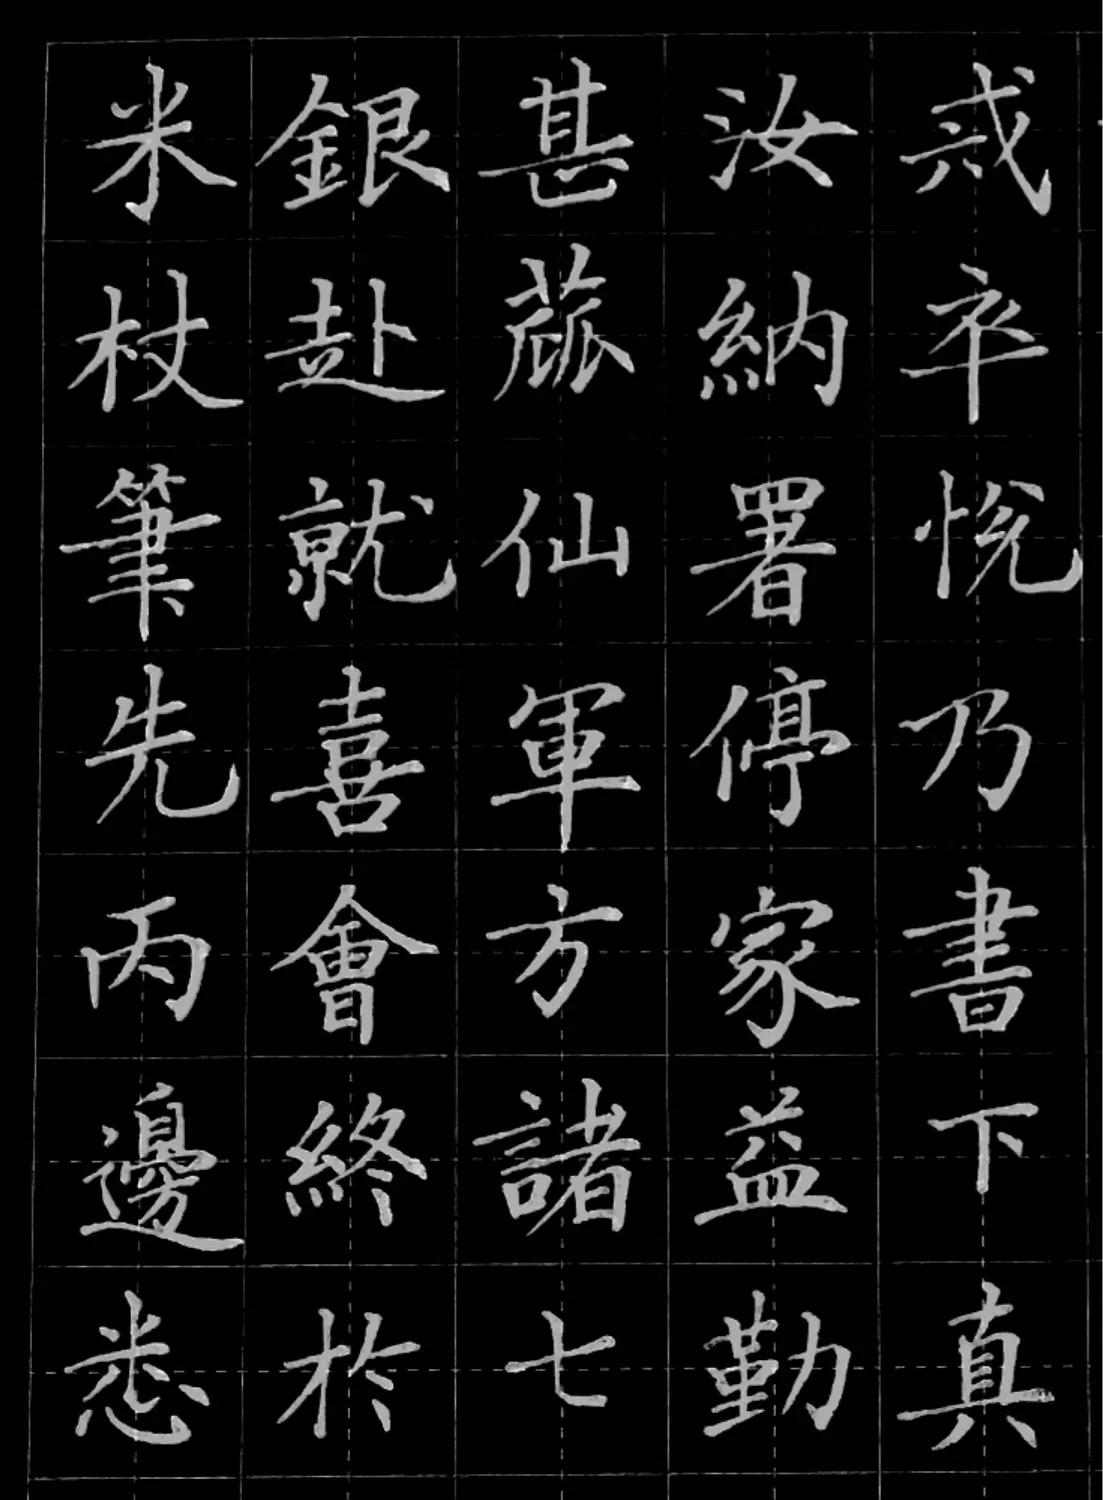 卒悅乃書下真
汝納署停家益勤
甚仙軍方諸七
銀赴就喜會終於
米杖筆先丙邊悉